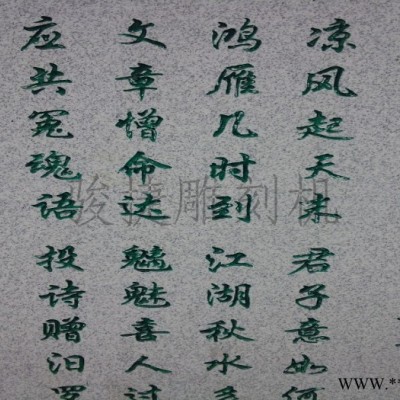 凉风起天末君子意如何
鸿雁几时到江湖秋水多
文章憎命达魑魅喜人过
应共冤魂语投诗赠汨罗
骏捷雕刻机
WWW.*